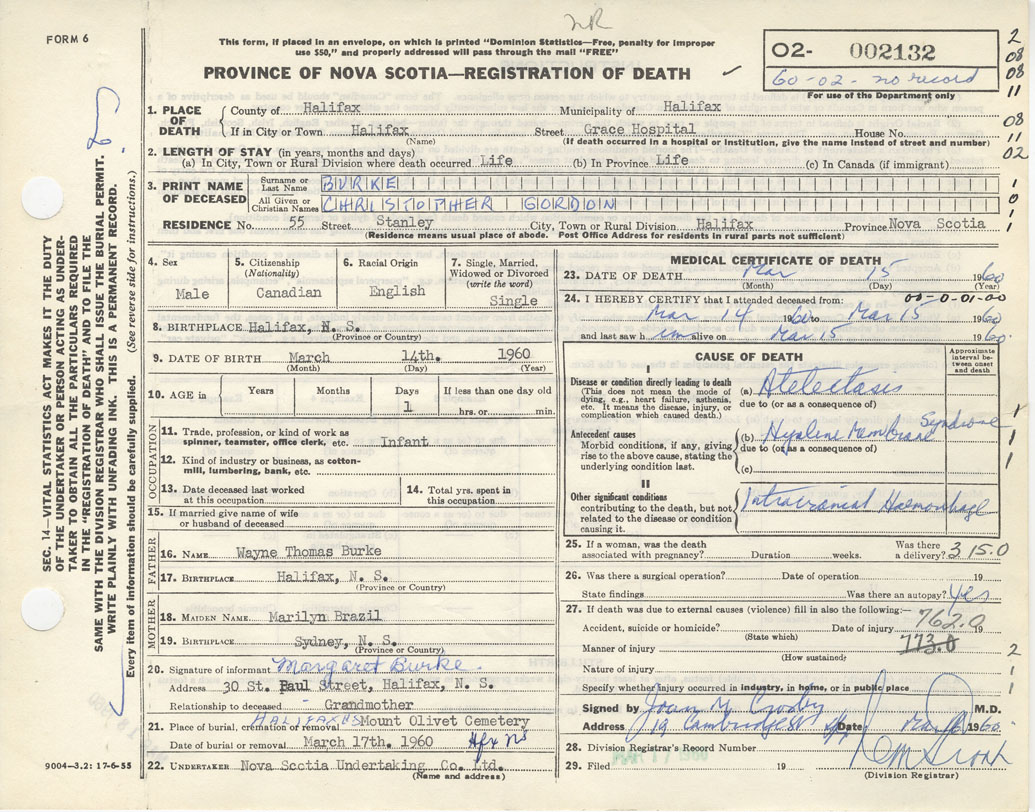 NR
FORM 6
This form, if placed in an envelope, on which is printed "Dominion Statistics—Free, penalty for improper
use $50," and properly addressed will pass through the mail "FREE"
PROVINCE OF NOVA SCOTIA—REGISTRATION OF DEATH
02- 002132
60-02- no record
For use of the Department only
2
08
08
11
08
11
02
1
0
1
1
1
1
2
1
SEC. 14—VITAL STATISTICS ACT MAKES IT THE DUTY
OF THE UNDERTAKER OR PERSON ACTING AS UNDER-
TAKER TO OBTAIN ALL THE PARTICULARS REQUIRED
IN THE "REGISTRATION OF DEATH" AND TO FILE THE
SAME WITH THE DIVISION REGISTRAR WHO SHALL ISSUE THE BURIAL PERMIT.
WRITE PLAINLY WITH UNFADING INK. THIS IS A PERMANENT RECORD.
Every item of information should be carefully supplied. (See reverse side for instructions.)
1. PLACE OF DEATH
County of Halifax Municipality of Halifax
If in City or Town Halifax Street Grace Hospital House No.
(Name) (If death occurred in a hospital or institution, give the name instead of street and number)
2. LENGTH OF STAY (in years, months and days)
(a) In City, Town or Rural Division where death occurred Life (b) In Province Life (c) In Canada (if immigrant)
3. PRINT NAME OF DECEASED
Surname or Last Name BURKE
All Given or Christian Names CHRISTOPHER GORDON
RESIDENCE No. 55 Street Stanley City, Town or Rural Division Halifax Province Nova Scotia
(Residence means usual place of abode. Post Office Address for residents in rural parts not sufficient)
4. Sex
Male
5. Citizenship
(Nationality)
Canadian
6. Racial Origin
English
7. Single, Married,
Widowed or Divorced
(write the word)
Single
8. BIRTHPLACE Halifax, N. S.
(Province or Country)
9. DATE OF BIRTH March 14th. 1960
(Month) (Day) (Year)
10. AGE in
Years Months Days If less than one day old
1 hrs. or min.
OCCUPATION
11. Trade, profession, or kind of work as
spinner, teamster, office clerk, etc. Infant
12. Kind of industry or business, as cotton-
mill, lumbering, bank, etc.
13. Date deceased last worked
at this occupation
14. Total yrs. spent in
this occupation
15. If married give name of wife
or husband of deceased
FATHER
16. NAME Wayne Thomas Burke
17. BIRTHPLACE Halifax, N. S.
(Province or Country)
MOTHER
18. MAIDEN NAME Marilyn Brazil
19. BIRTHPLACE Sydney, N. S.
(Province or Country)
20. Signature of informant Margaret Burke.
Address 30 St. Paul Street, Halifax, N. S.
Relationship to deceased Grandmother
HALIFAX
21. Place of burial, cremation or removal Mount Olivet Cemetery
Date of burial or removal March 17th. 1960 Hfx NS
22. UNDERTAKER Nova Scotia Undertaking Co. Ltd.
(Name and address)
9004—3.2: 17-6-55
MEDICAL CERTIFICATE OF DEATH
23. DATE OF DEATH Mar 15 1960
(Month) (Day) (Year)
24. I HEREBY CERTIFY that I attended deceased from: 00-0-01-00
Mar 14 1960 to Mar 15 1960
and last saw h im alive on Mar 15 1960
CAUSE OF DEATH
Approximate
interval be-
tween onset
and death
I
Disease or condition directly leading to death
(This does not mean the mode of
dying, e.g., heart failure, asthenia,
etc. It means the disease, injury, or
complication which caused death.)
(a) Atelectasis
due to (or as a consequence of)
Antecedent causes
Morbid conditions, if any, giving
rise to the above cause, stating the
underlying condition last.
(b) Hyaline Membrane Syndrome
due to (or as a consequence of)
(c)
II
Other significant conditions
contributing to the death, but not
related to the disease or condition
causing it.
Intracranial Haemorrhage
25. If a woman, was the death
associated with pregnancy? Duration weeks.
Was there
a delivery?
315.0
26. Was there a surgical operation? Date of operation 19
State findings Was there an autopsy? Yes
27. If death was due to external causes (violence) fill in also the following:—
762.0
Accident, suicide or homicide? Date of injury 19
(State which)
773.0
Manner of injury
(How sustained)
Nature of injury
Specify whether injury occurred in industry, in home, or in public place
Signed by Joan M Crosby M.D.
Address 19 Cambridge St Date Mar 1960
28. Division Registrar's Record Number
29. Filed MAR 17 1960 19
(Division Registrar)